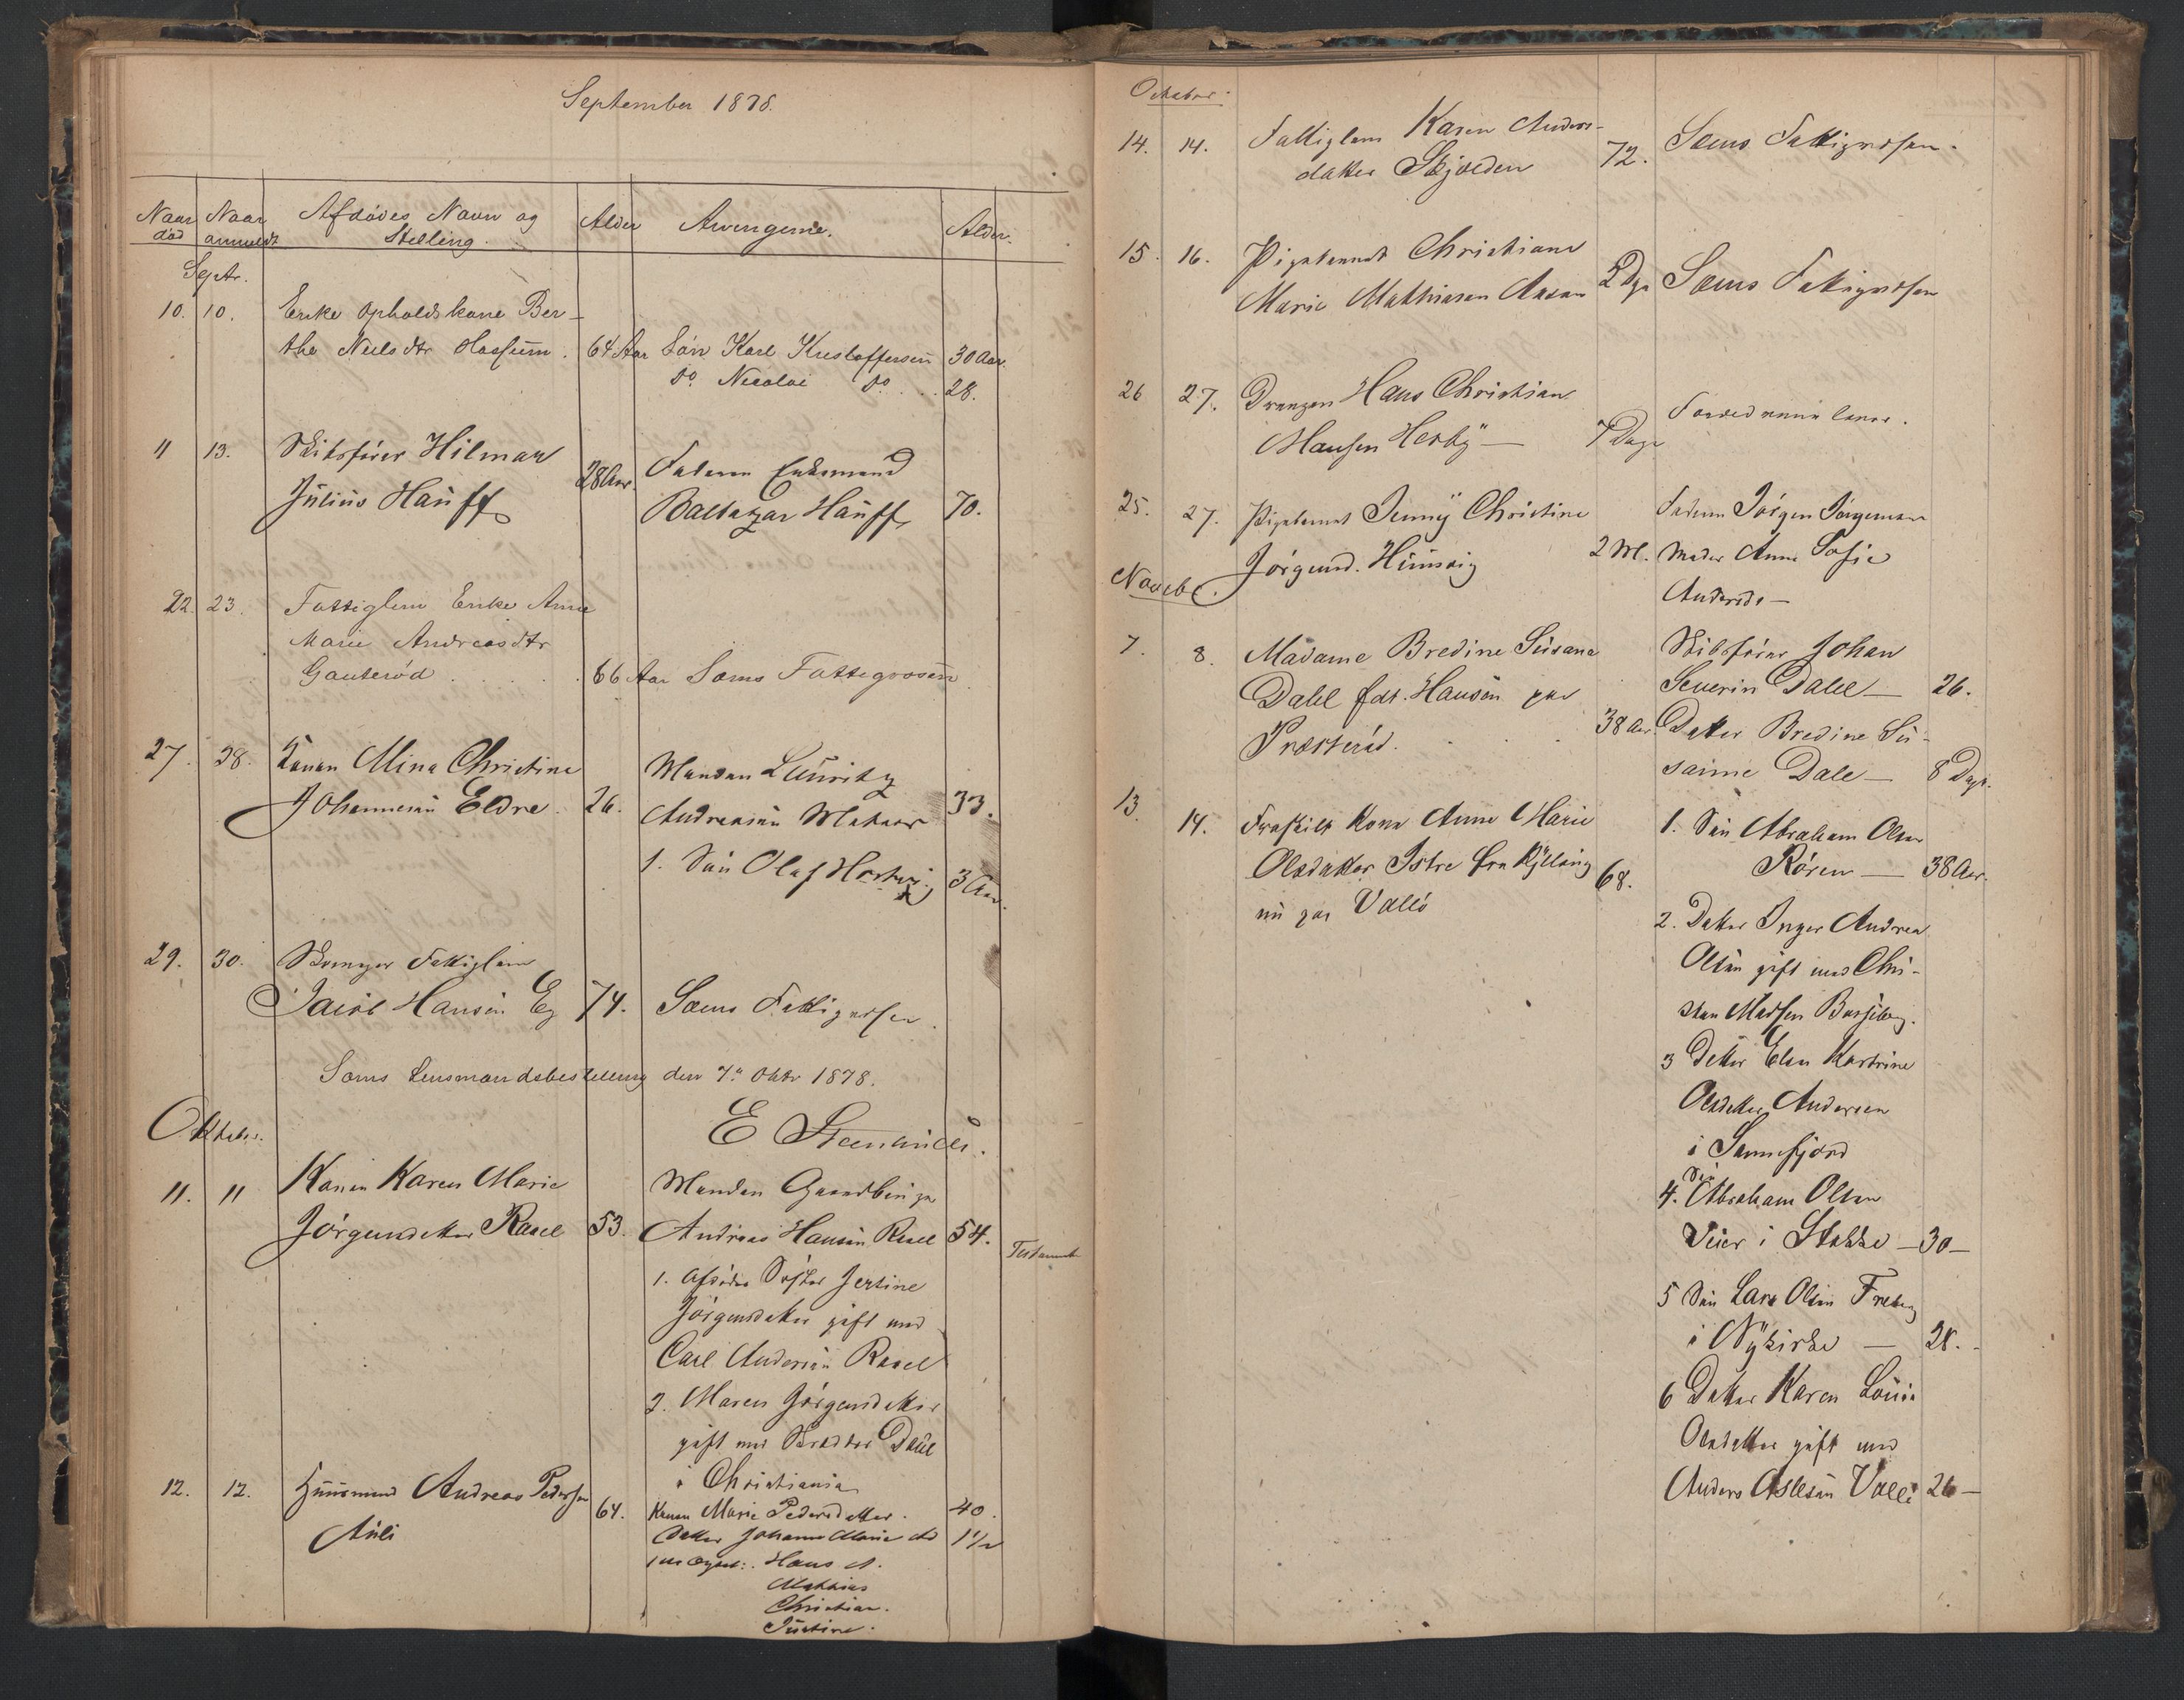 September 1878.
Naar død
Naar anmeldt
Afdødes Navn og Stilling.
Alder
Arvingerne.
Alder.
Septr.
10. 10. Enke Opholdskone Ber-
the Neelsdtr Hassum. 64 Aar Søn Karl Kristoffersen 30 Aar.
do. Nicolai do. . . 28.
11 13. Skibsfører Hilmar
Julius Hauff 28 Aar. Faderen Enkemand
Baltazar Hauff 70.
22. 23. Fattiglem Enke Anne
Marie Andreasdtr
Gauterød . . . . . 66 Aar Sems Fattigvæsen
27. 28. Konen Mina Christine
Johannesen Eldre. 26. Manden Lauritz
Andreasen 33.
1. Søn Olaf 3 Aar.
29. 30. Fattiglem
Jacob Hansen Eg 74. Sems Fattigvæsen.
Sems Lensmandsbestilling den 7de Oktr 1878.
E
Oktober.
11. 11 Konen Karen Marie
Jørgensdatter Rasel 53. Manden Gaardbruger
Andreas Hansen Rasel 54. Testament
1. Afdødes Søster
Jørgensdatter gift med
Carl Andersen Rasel
2. Maren Jørgensdatter
gift med Skrædder
i Christiania
12. 12. Huusmand Andreas Pedersen
Auli 64. Konen Marie Pedersdatter. 40.
Datter Johanne Marie 1½
Hans A.
Mathias
Christian.
Justine.
October.
14. 14. Fattiglem Karen Anders-
datter Skjolden 72. Sems Fattigvæsen.
15. 16. Pigebarnet Christiane
Marie Mathiasen 2 Dge Sems Fattigvæsen
26 27. Drengen Hans Christian
Hansen Hesby — 7 Dage Foreldrene lever.
25. 27. Pigebarnet Jenny Christine
Jørgensd. Himsrig 2 M. Faderen Jørgen Jørgensen
Moder Anne Sofie
Andersdr —
Novebr.
7. 8. Madame Bredine Susana
Dahl født Hansen paa
Præsterød. 38 Aar. Skibsfører Johan
Severin Dahl — 26.
Datter Bredine Su-
sanne Dahl — 8 Dage.
13. 14. Fraskilt Kone Anne Marie
Olsdatter Istre fra Kjelling
nu paa Vallø 68. 1. Søn Abraham Olsen
Røren — 38 Aar.
2. Datter Inger Andrea
Olsen gift med Chri-
stian Madsen Borgeberg.
3 Datter Elen Kartrine
Olsdatter Andersen
i Sannefjord
4. Søn Abraham Olsen
i Stokke — 30 —
5 Søn Lars Olsen Freberg
i Nykirke — 28. -
6 Datter Karen Louise
Olsdatter gift med
Anders Aslesen Vallø 26 —